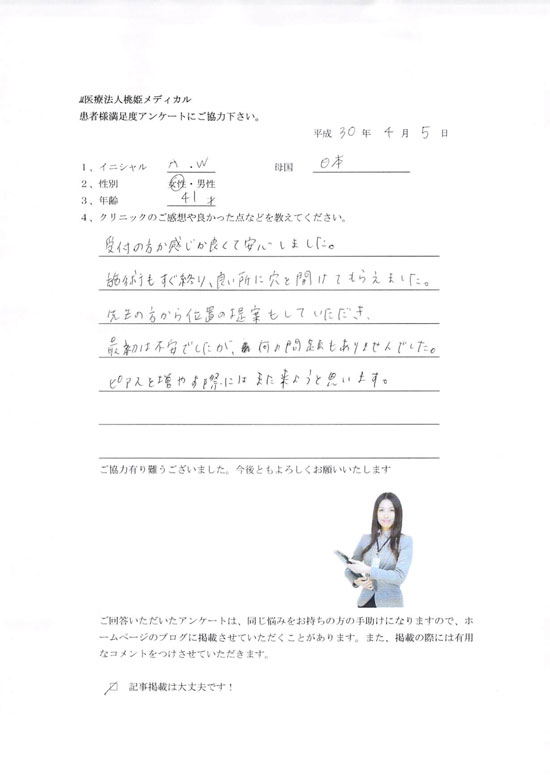 医療法人桃姫メディカル
患者様満足度アンケートにご協力下さい。
平成 30 年 4 月 5 日
1、イニシャル A . W 母国 日本
2、性別 女性・男性
3、年齢 41才
4、クリニックのご感想や良かった点などを教えてください。
受付の方が感じが良くて安心しました。
施術もすぐ終り、良い所に穴を開けてもらえました。
先生の方から位置の提案もしていただき、
最初は不安でしたが、何の問題もありませんでした。
ピアスを増やす際にはまた来ようと思います。
ご協力有り難うございました。今後ともよろしくお願いいたします
ご回答いただいたアンケートは、同じ悩みをお持ちの方の手助けになりますので、ホ
ームページのブログに掲載させていただくことがあります。また、掲載の際には有用
なコメントをつけさせていただきます。
記事掲載は大丈夫です！